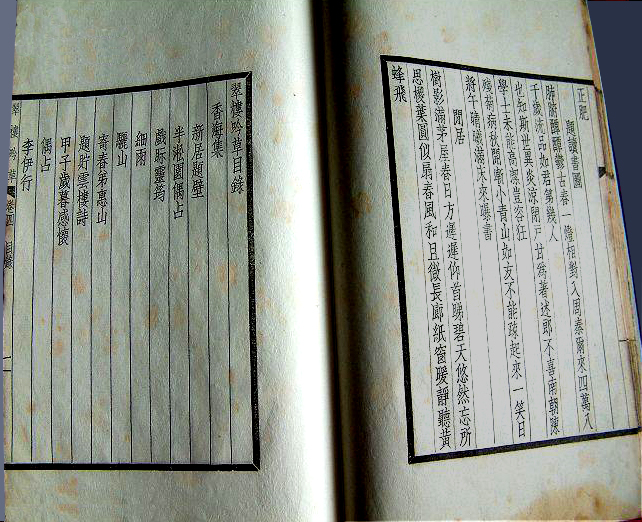 正肥
題讀書圖
肺腑醰醰鬱古春一燈相對入周秦爾來四萬八
千歲流品如君第幾人
也知斯世異炎涼閉戶甘為著述郎不喜南朝陳
學士未能高潔豈容狂
殘菊病秋開漸小青山如友不能疎起來一笑日
將午曦曦滿牀來曝書
閒居
樹影滿茅屋春日方遲遲仰首睇碧天悠然忘所
思樱葉圓似扇春風和且微長廊紙窗暖靜聽黃
蜂飛
翠樓吟草目錄
香海集
新居題壁
半淞園偶占
戲貽靈筠
細雨
驪山
寄春弟惠山
題貯雲樓詩
甲子歲暮感懷
偶占
李伊行
翠樓吟草 卷四 目錄 一